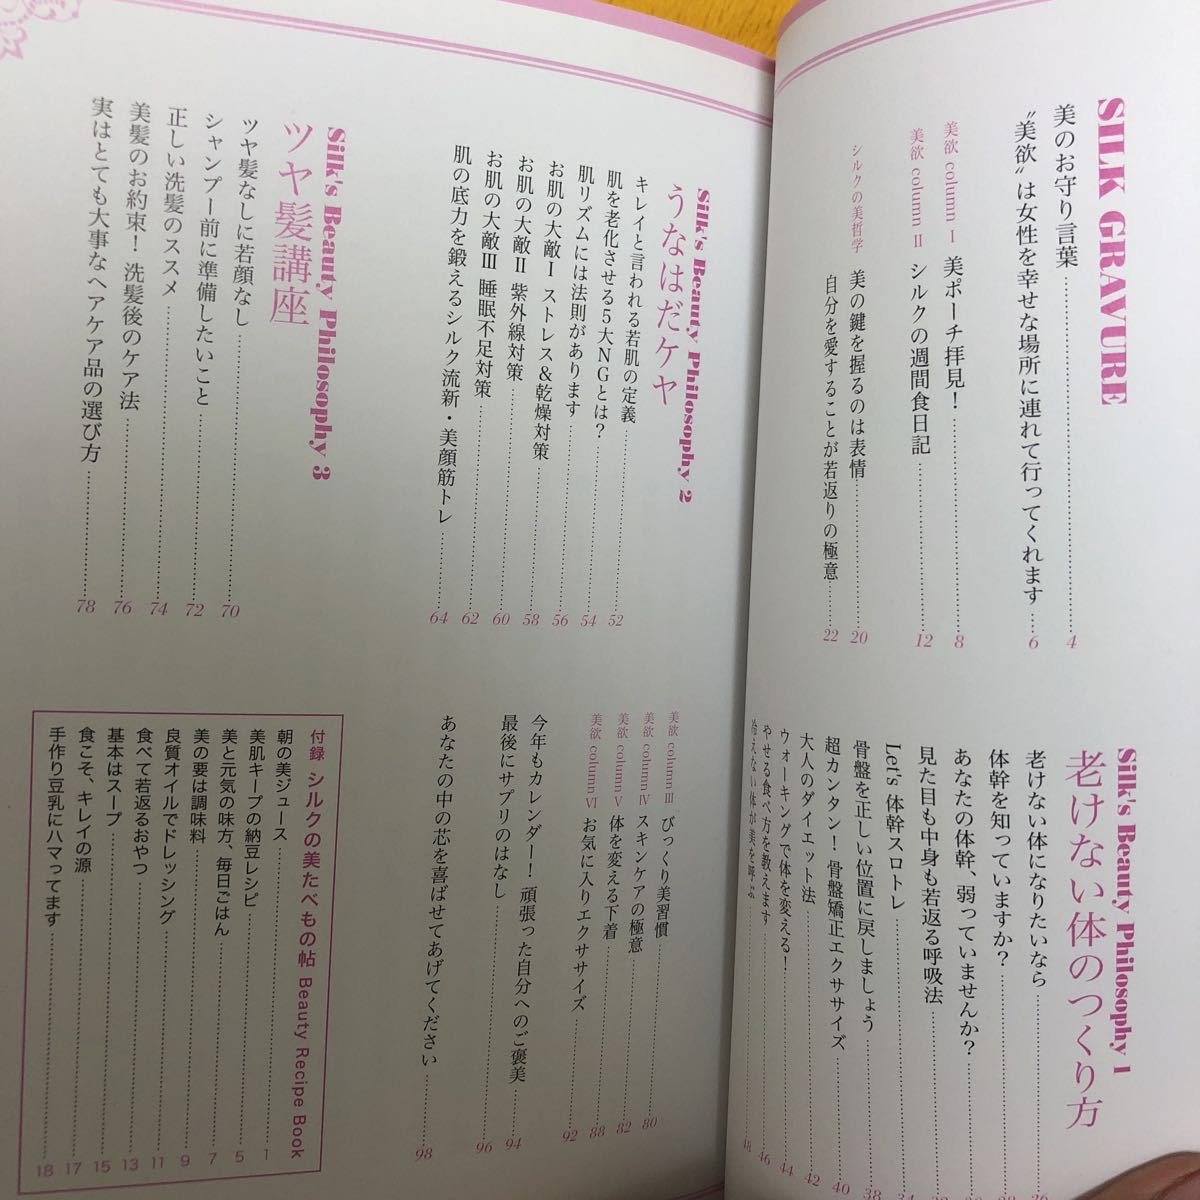 SILK GRAVURE
美のお守り言葉 4
〝美欲〟は女性を幸せな場所に連れて行ってくれます 6
美欲 column Ⅰ 美ポーチ拝見！ 8
美欲 column Ⅱ シルクの週間食日記 12
シルクの美哲学 美の鍵を握るのは表情 20
自分を愛することが若返りの極意 22
Silk's Beauty Philosophy 1
老けない体のつくり方
老けない体になりたいなら
体幹を知っていますか？
あなたの体幹、弱っていませんか？
見た目も中身も若返る呼吸法
Let's 体幹スロトレ 34
骨盤を正しい位置に戻しましょう 38
超カンタン！ 骨盤矯正エクササイズ 40
大人のダイエット法 42
ウォーキングで体を変える！ 44
やせる食べ方を教えます 46
冷えない体が美を呼ぶ 48
Silk's Beauty Philosophy 2
うなはだケヤ
キレイと言われる若肌の定義 52
肌を老化させる5大NGとは？ 54
肌リズムには法則があります 56
お肌の大敵Ⅰ ストレス＆乾燥対策 58
お肌の大敵Ⅱ 紫外線対策 60
お肌の大敵Ⅲ 睡眠不足対策 62
肌の底力を鍛えるシルク流新・美顔筋トレ 64
Silk's Beauty Philosophy 3
ツヤ髪講座
ツヤ髪なしに若顔なし 70
シャンプー前に準備したいこと 72
正しい洗髪のススメ 74
美髪のお約束！ 洗髪後のケア法 76
実はとても大事なヘアケア品の選び方 78
美欲 column Ⅲ びっくり美習慣 80
美欲 column Ⅳ スキンケアの極意 82
美欲 column Ⅴ 体を変える下着 88
美欲 column Ⅵ お気に入りエクササイズ 92
今年もカレンダー！ 頑張った自分へのご褒美 94
最後にサプリのはなし 96
あなたの中の芯を喜ばせてあげてください 98
付録 シルクの美たべもの帖 Beauty Recipe Book
朝の美ジュース 1
美肌キープの納豆レシピ 5
美と元気の味方、毎日ごはん 7
美の要は調味料 9
良質オイルでドレッシング 11
食べて若返るおやつ 13
基本はスープ 15
食こそ、キレイの源 17
手作り豆乳にハマってます 18